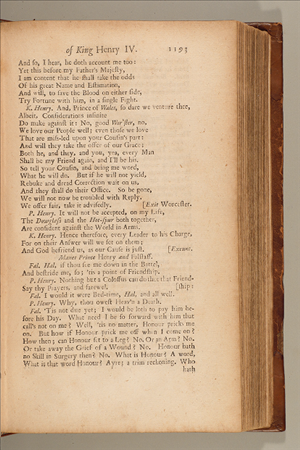 of King Henry IV. 1193
And so, I hear, he doth account me too:
Yet this before my Father's Majesty,
I am content that he shall take the odds
Of his great Name and Estimation,
And will, to save the Blood on either side,
Try Fortune with him, in a single Fight.
K. Henry. And, Prince of Wales, so dare we venture thee,
Albeit, Considerations infinite
Do make against it: No, good Wor'ster, no,
We love our People well; even those we love
That are mis-led upon your Cousin's part:
And will they take the offer of our Grace;
Both he, and they, and you, yea, every Man
Shall be my Friend again, and I'll be his.
So tell your Cousin, and bring me word,
What he will do. But if he will not yield,
Rebuke and dread Correction wait on us,
And they shall do their Office. So be gone,
We will not now be troubled with Reply,
We offer fair, take it advisedly. [Exit Worcester.
P. Henry. It will not be accepted, on my Life,
The Dowglass and the Hot-spur both together,
Are confident against the World in Arms.
K. Henry. Hence therefore, every Leader to his Charge,
For on their Answer will we set on them;
And God befriend us, as our Cause is just. [Exeunt.
Manet Prince Henry and Falstaff.
Fal. Hal, if thou see me down in the Battel,
And bestride me, so; 'tis a point of Friendship.
P. Henry. Nothing but a Colossus can do thee that Friend-
Say thy Prayers, and farewel. [ship;
Fal. I would it were Bed-time, Hal, and all well.
P. Henry. Why, thou owest Heav'n a Death.
Fal. 'Tis not due yet; I would be loth to pay him be-
fore his Day. What need I be so forward with him that
call's not on me? Well, 'tis no matter, Honour pricks me
on. But how if Honour prick me off when I come on?
How then; can Honour set to a Leg? No. Or an Arm? No.
Or take away the Grief of a Wound? No. Honour hath
no Skill in Surgery then? No. What is Honour? A word,
What is that word Honour? Ayre; a trim reckoning. Who
hath